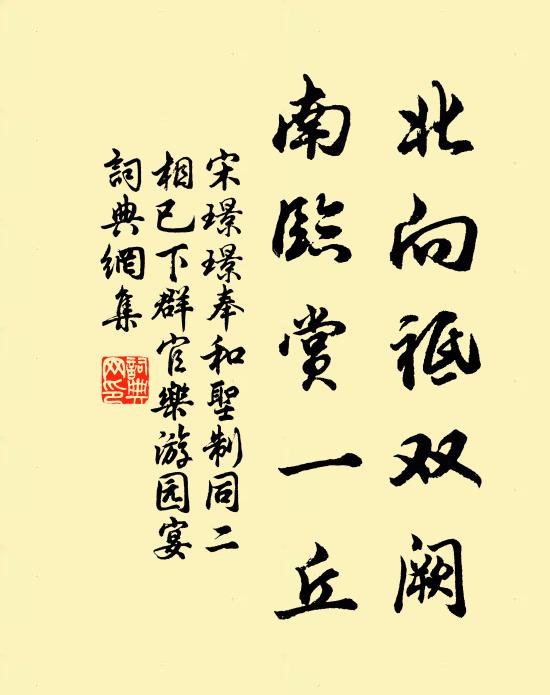 北向祗双阙
南临赏一丘
宋璟璟奉和聖制同二
相已下群官樂游园宴
詞典網集
詞典
网印